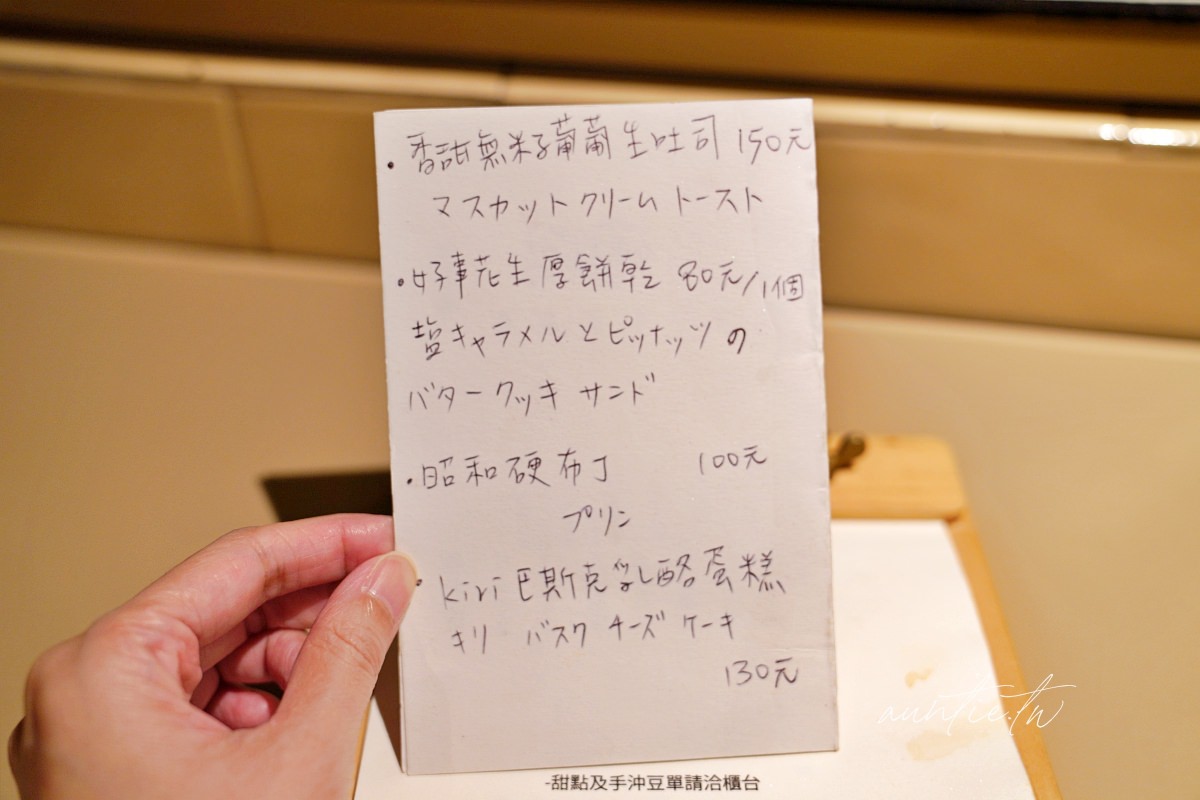 • 香甜無籽葡萄生吐司 150元
マスカットクリームトースト
• 好事花生厚餅乾 80元/1個
塩キャラメルとピッナッツの
バタークッキサンド
• 昭和硬布丁 100元
プリン
• kiri 巴斯克乳酪蛋糕
キリ バスク チーズ ケーキ
130元
auntie.tw
-甜點及手沖豆單請洽櫃台